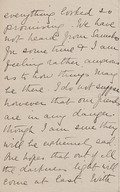 everything looked so
promising. We have
not heard from
for some time & I am
feeling rather anxious
as to how things may
be there. I do not suppose
however that our friends
are in any danger
though I am sure they
will be extremely sad
But hope that out of all
the darkness light will
come at last. With